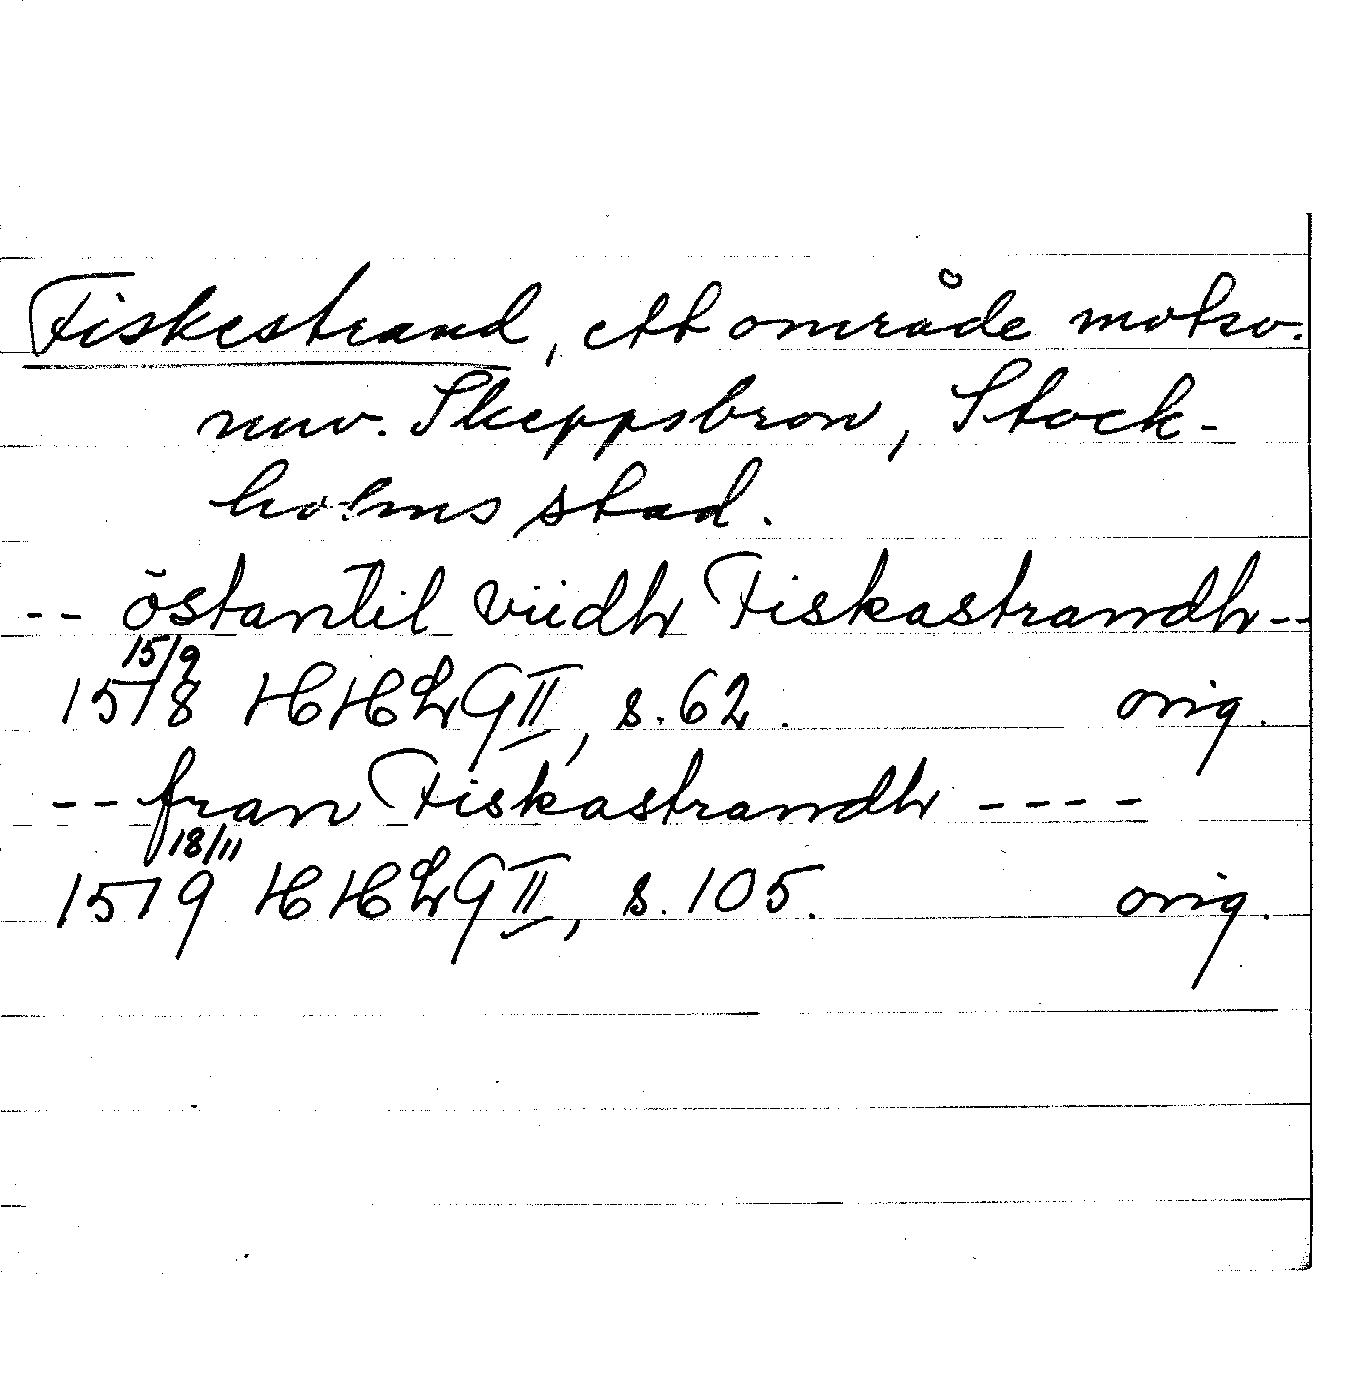 Fiskestrand, ett område motsv.
nuv. Skeppsbron, Stock-
holms stad.
-- östantil viidh Fiskastrandh --
15/9
1578 HHLG II, s. 62. orig.
-- fran Fiskastrandh ----
18/11
1579 HHLG II, s. 105. orig.